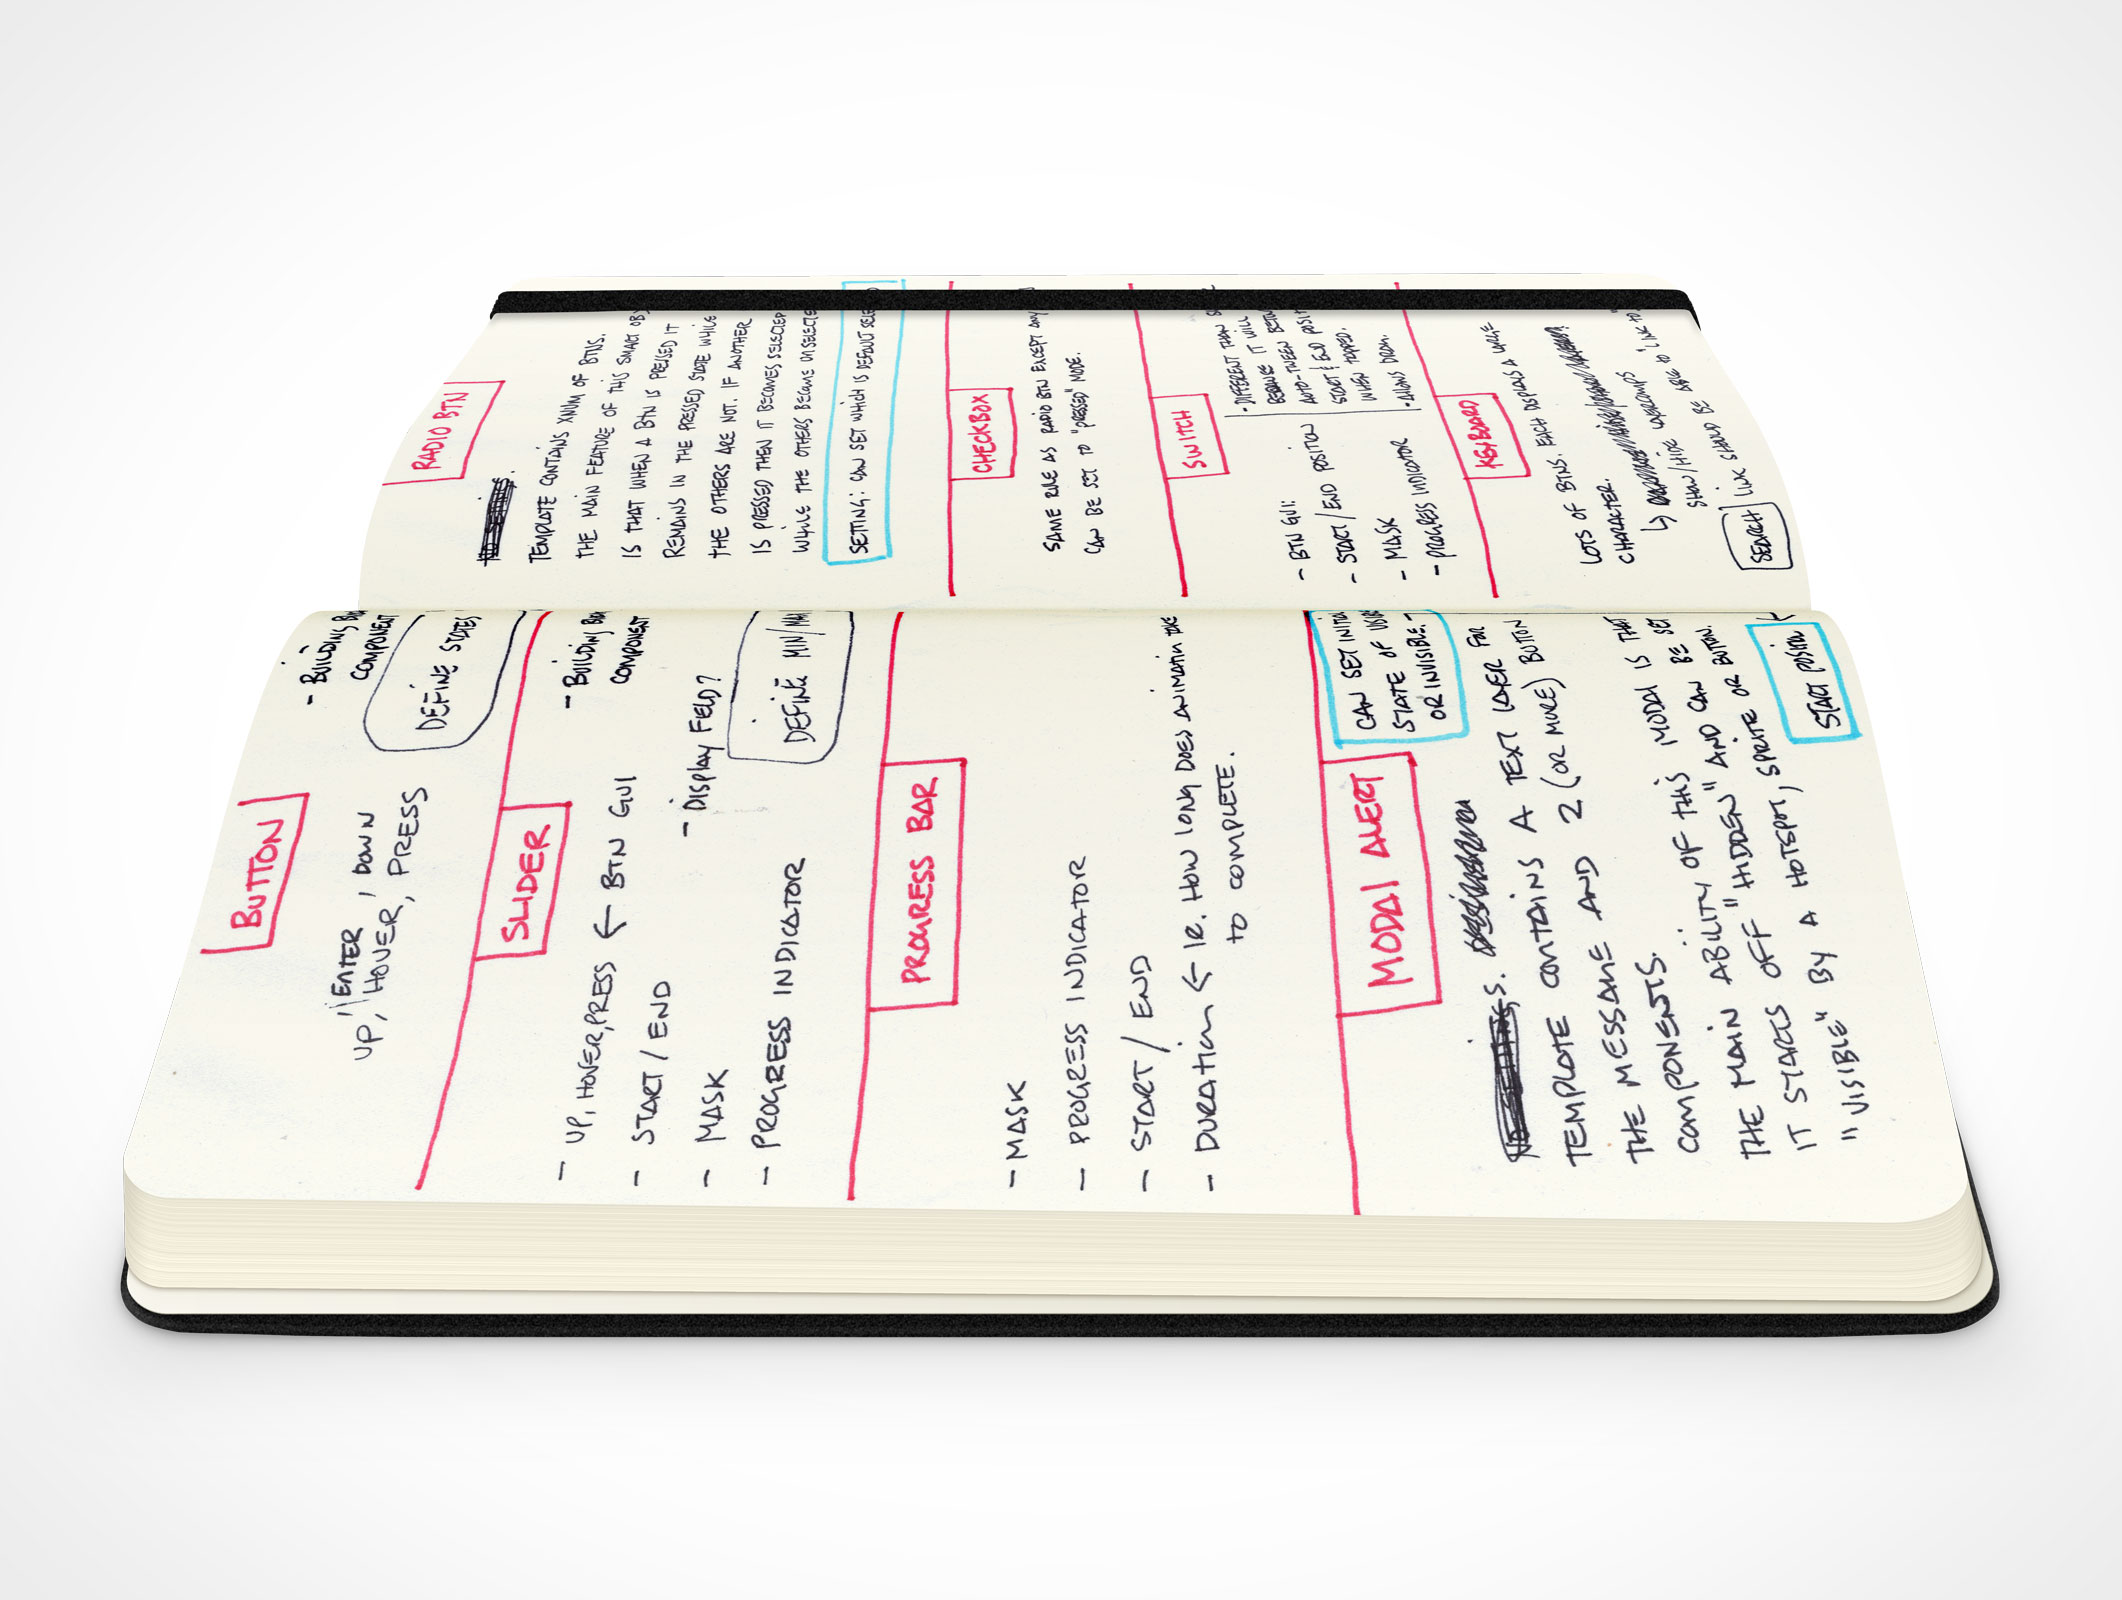 BUTTON
ENTER, DOWN
UP, HOVER, PRESS
- BUILDING
COMPONENT
DEFINE STATES
SLIDER
- UP, HOVER, PRESS ← BTN GUI
- START / END
- MASK
- PROGRESS INDICATOR
- BUILDING
COMPONENT
- DISPLAY FIELD?
DEFINE MIN/
PROGRESS BAR
- MASK
- PROGRESS INDICATOR
- START / END
- DURATION ← IE. HOW LONG DOES ANIMATION TAKE
TO COMPLETE.
MODAL ALERT
CAN SET
STATE OF
OR INVISIBLE.
NO SETTINGS.
TEMPLATE CONTAINS A TEXT LAYER FOR
THE MESSAGE AND 2 (OR MORE) BUTTON
COMPONENTS.
THE MAIN ABILITY OF THIS MODAL IS THAT
IT STARTS OFF "HIDDEN" AND CAN BE SET
"VISIBLE" BY A HOTSPOT, SPRITE OR BUTTON.
START POSITION
RADIO BTN
NO SETTINGS.
TEMPLATE CONTAINS XNUM OF BTNS.
THE MAIN FEATURE OF THIS SMART OBJ
IS THAT WHEN A BTN IS PRESSED IT
REMAINS IN THE PRESSED STATE WHILE
THE OTHERS ARE NOT. IF ANOTHER
IS PRESSED THEN IT BECOMES SELECTED
WHILE THE OTHERS BECOME UNSELECTED
SETTING: CAN SET WHICH IS DEFAULT SELECTED
CHECKBOX
SAME RULE AS RADIO BTN EXCEPT ANY
CAN BE SET TO "PRESSED" MODE.
SWITCH
- BTN GUI:
- START/END POSITION
- MASK
- PROGRESS INDICATOR
- DIFFERENT THAN
BECAUSE IT WILL
AUTO-TWEEN
START & END
WHEN TAPPED.
- ALLOWS DRAG.
KEYBOARD
LOTS OF BTNS. EACH DISPLAYS A
CHARACTER.
↳ SHOW/HIDE
SEARCH LINK SHOULD BE ABLE TO "LINK TO"